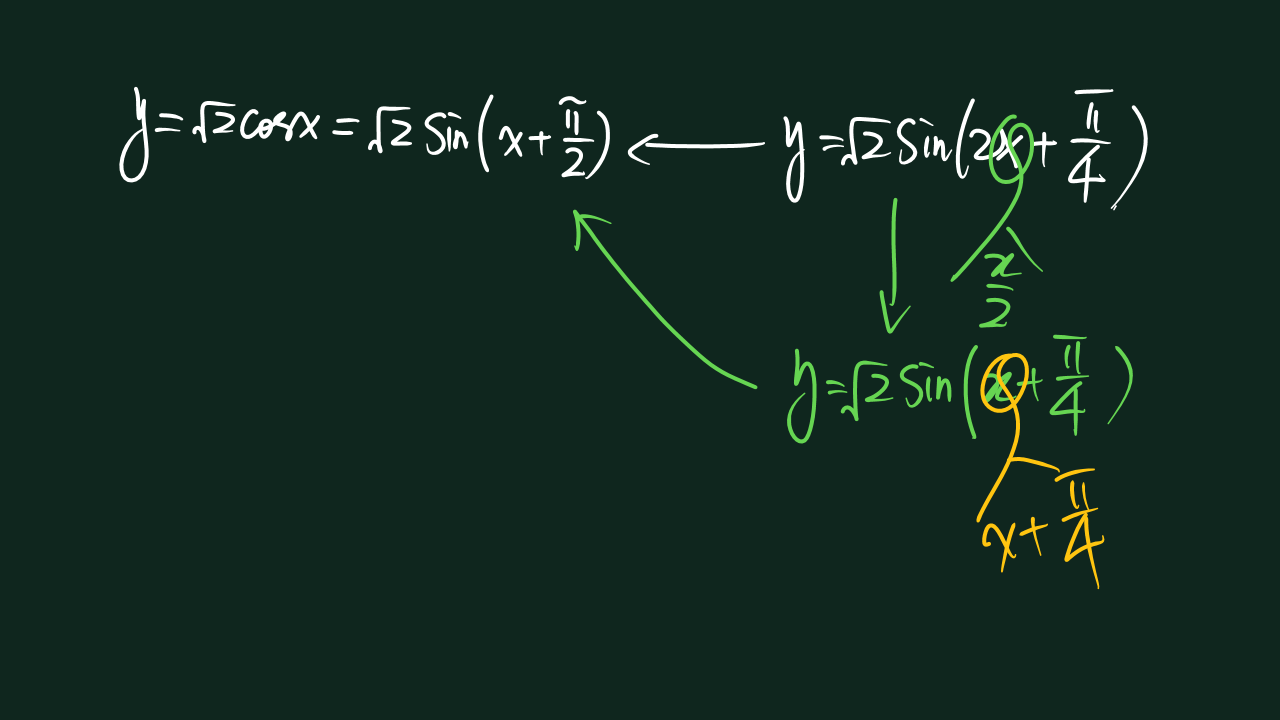 y=√2cosx=√2Sin(x+π/2) ← y=√2Sin(2x+π/4)
x/2
y=√2Sin(x+π/4)
x+π/4